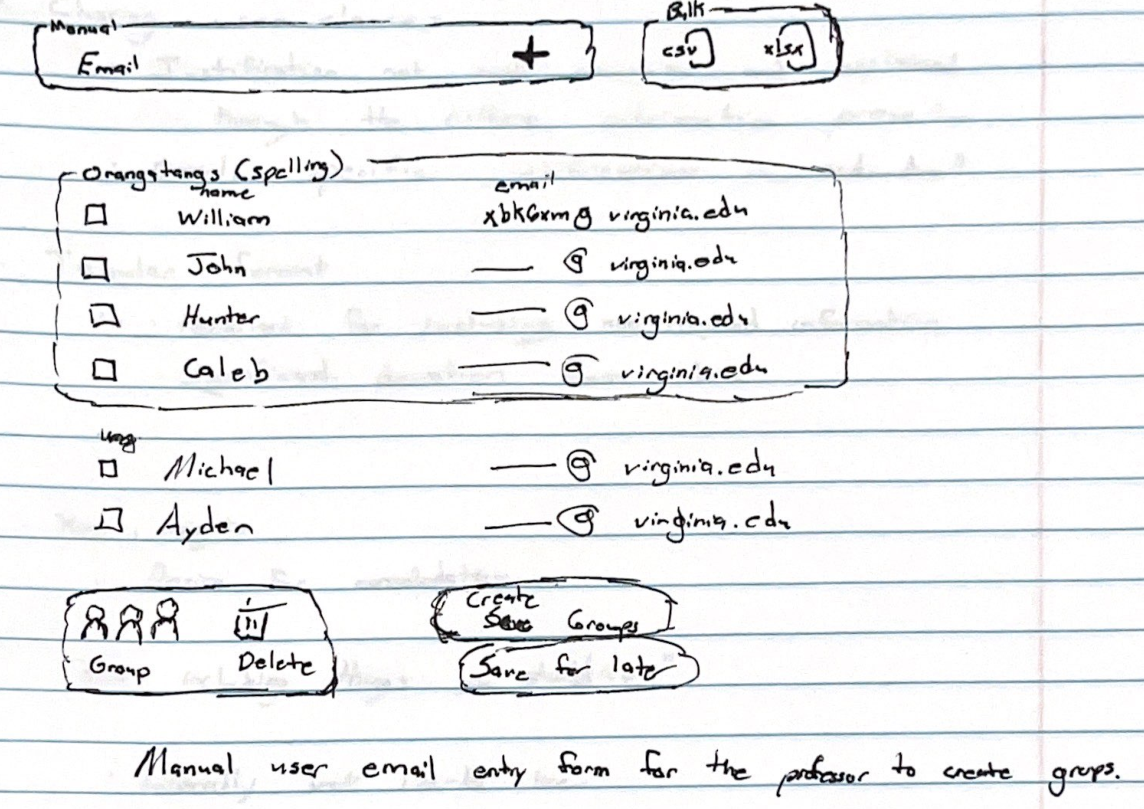 Manual
Email +
Bulk
csv xlsx
Orangatangs (spelling)
name email
William xbk6xm@ virginia.edu
John @ virginia.edu
Hunter @ virginia.edu
Caleb @ virginia.edu
Michael @ virginia.edu
Ayden @ virginia.edu
Group Delete
Create
Groups
Save for late
Manual user email entry form for the professor to create grops.